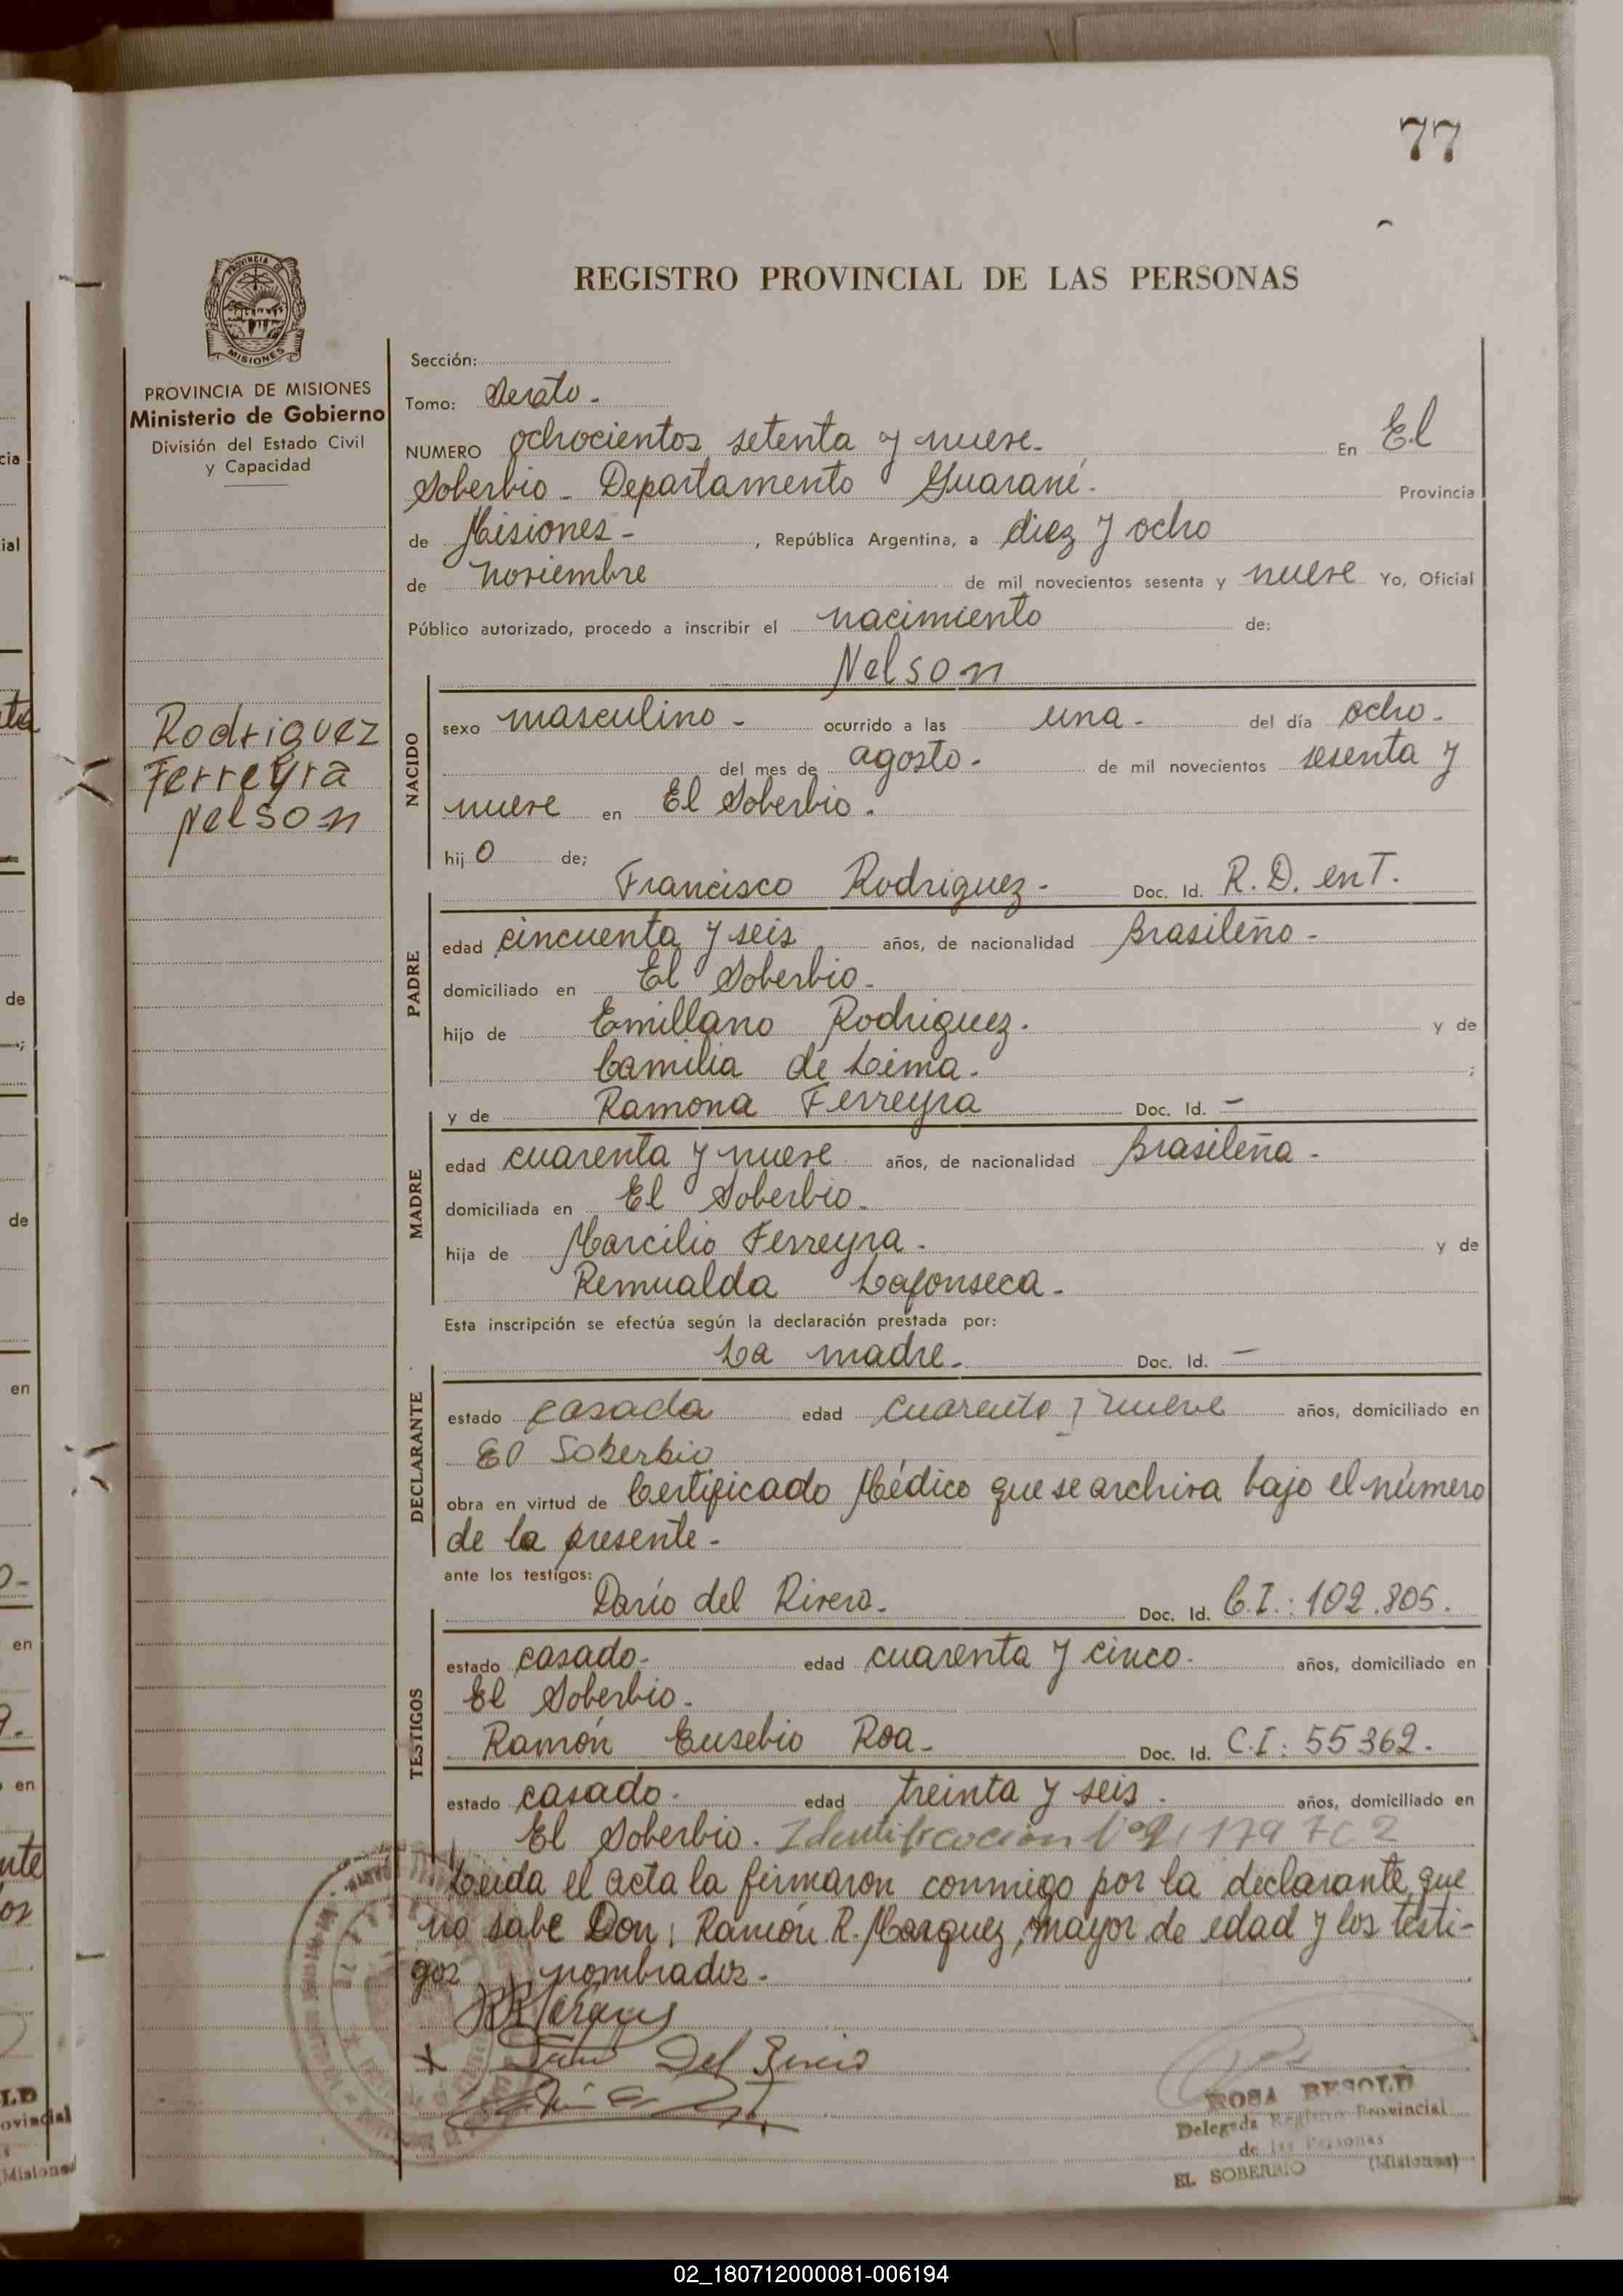 77
REGISTRO PROVINCIAL DE LAS PERSONAS
PROVINCIA DE MISIONES
Ministerio de Gobierno
División del Estado Civil
y Capacidad
Sección:
Tomo:
NUMERO ochocientos setenta y nueve. En El
Soberbio - Departamento Guaraní. Provincia
de Misiones - , República Argentina, a diez y ocho
de noviembre de mil novecientos sesenta y nueve Yo, Oficial
Público autorizado, procedo a inscribir el nacimiento de:
Nelson
Rodriguez
Ferreyra
Nelson
NACIDO
sexo masculino - ocurrido a las una - del día ocho -
del mes de agosto - de mil novecientos sesenta y
nueve en El Soberbio.
hijo de;
Francisco Rodriguez - Doc. Id. R. D. enT.
PADRE
edad cincuenta y seis años, de nacionalidad Brasileño -
domiciliado en El Soberbio -
hijo de Emillano Rodriguez. y de
Camilia de Lima. ;
y de Ramona Ferreyra Doc. Id. -
MADRE
edad cuarenta y nueve años, de nacionalidad Brasileña -
domiciliada en El Soberbio.
hija de Marcilio Ferreyra - y de
Remualda Lafonseca -
Esta inscripción se efectúa según la declaración prestada por:
La madre. Doc. Id. -
DECLARANTE
estado casada edad cuarenta y nueve años, domiciliado en
El Soberbio
obra en virtud de Certificado Médico que se archiva bajo el número
de la presente -
ante los testigos:
Darío del Rivero. Doc. Id. C.I.: 102.805.
TESTIGOS
estado casado - edad cuarenta y cinco - años, domiciliado en
El Soberbio.
Ramón Eusebio Roa - Doc. Id. C.I: 55362.
estado casado - edad treinta y seis. años, domiciliado en
El Soberbio. Identificación
Leida el acta la firmaron conmigo por la declarante que
no sabe Don, Ramón R. Marquez, mayor de edad y los testi-
gos nombrados -
Del
ROSA BESOLD
Delegada Registro Provincial
de las Personas
EL SOBERBIO (Misiones)
02_180712000081-006194